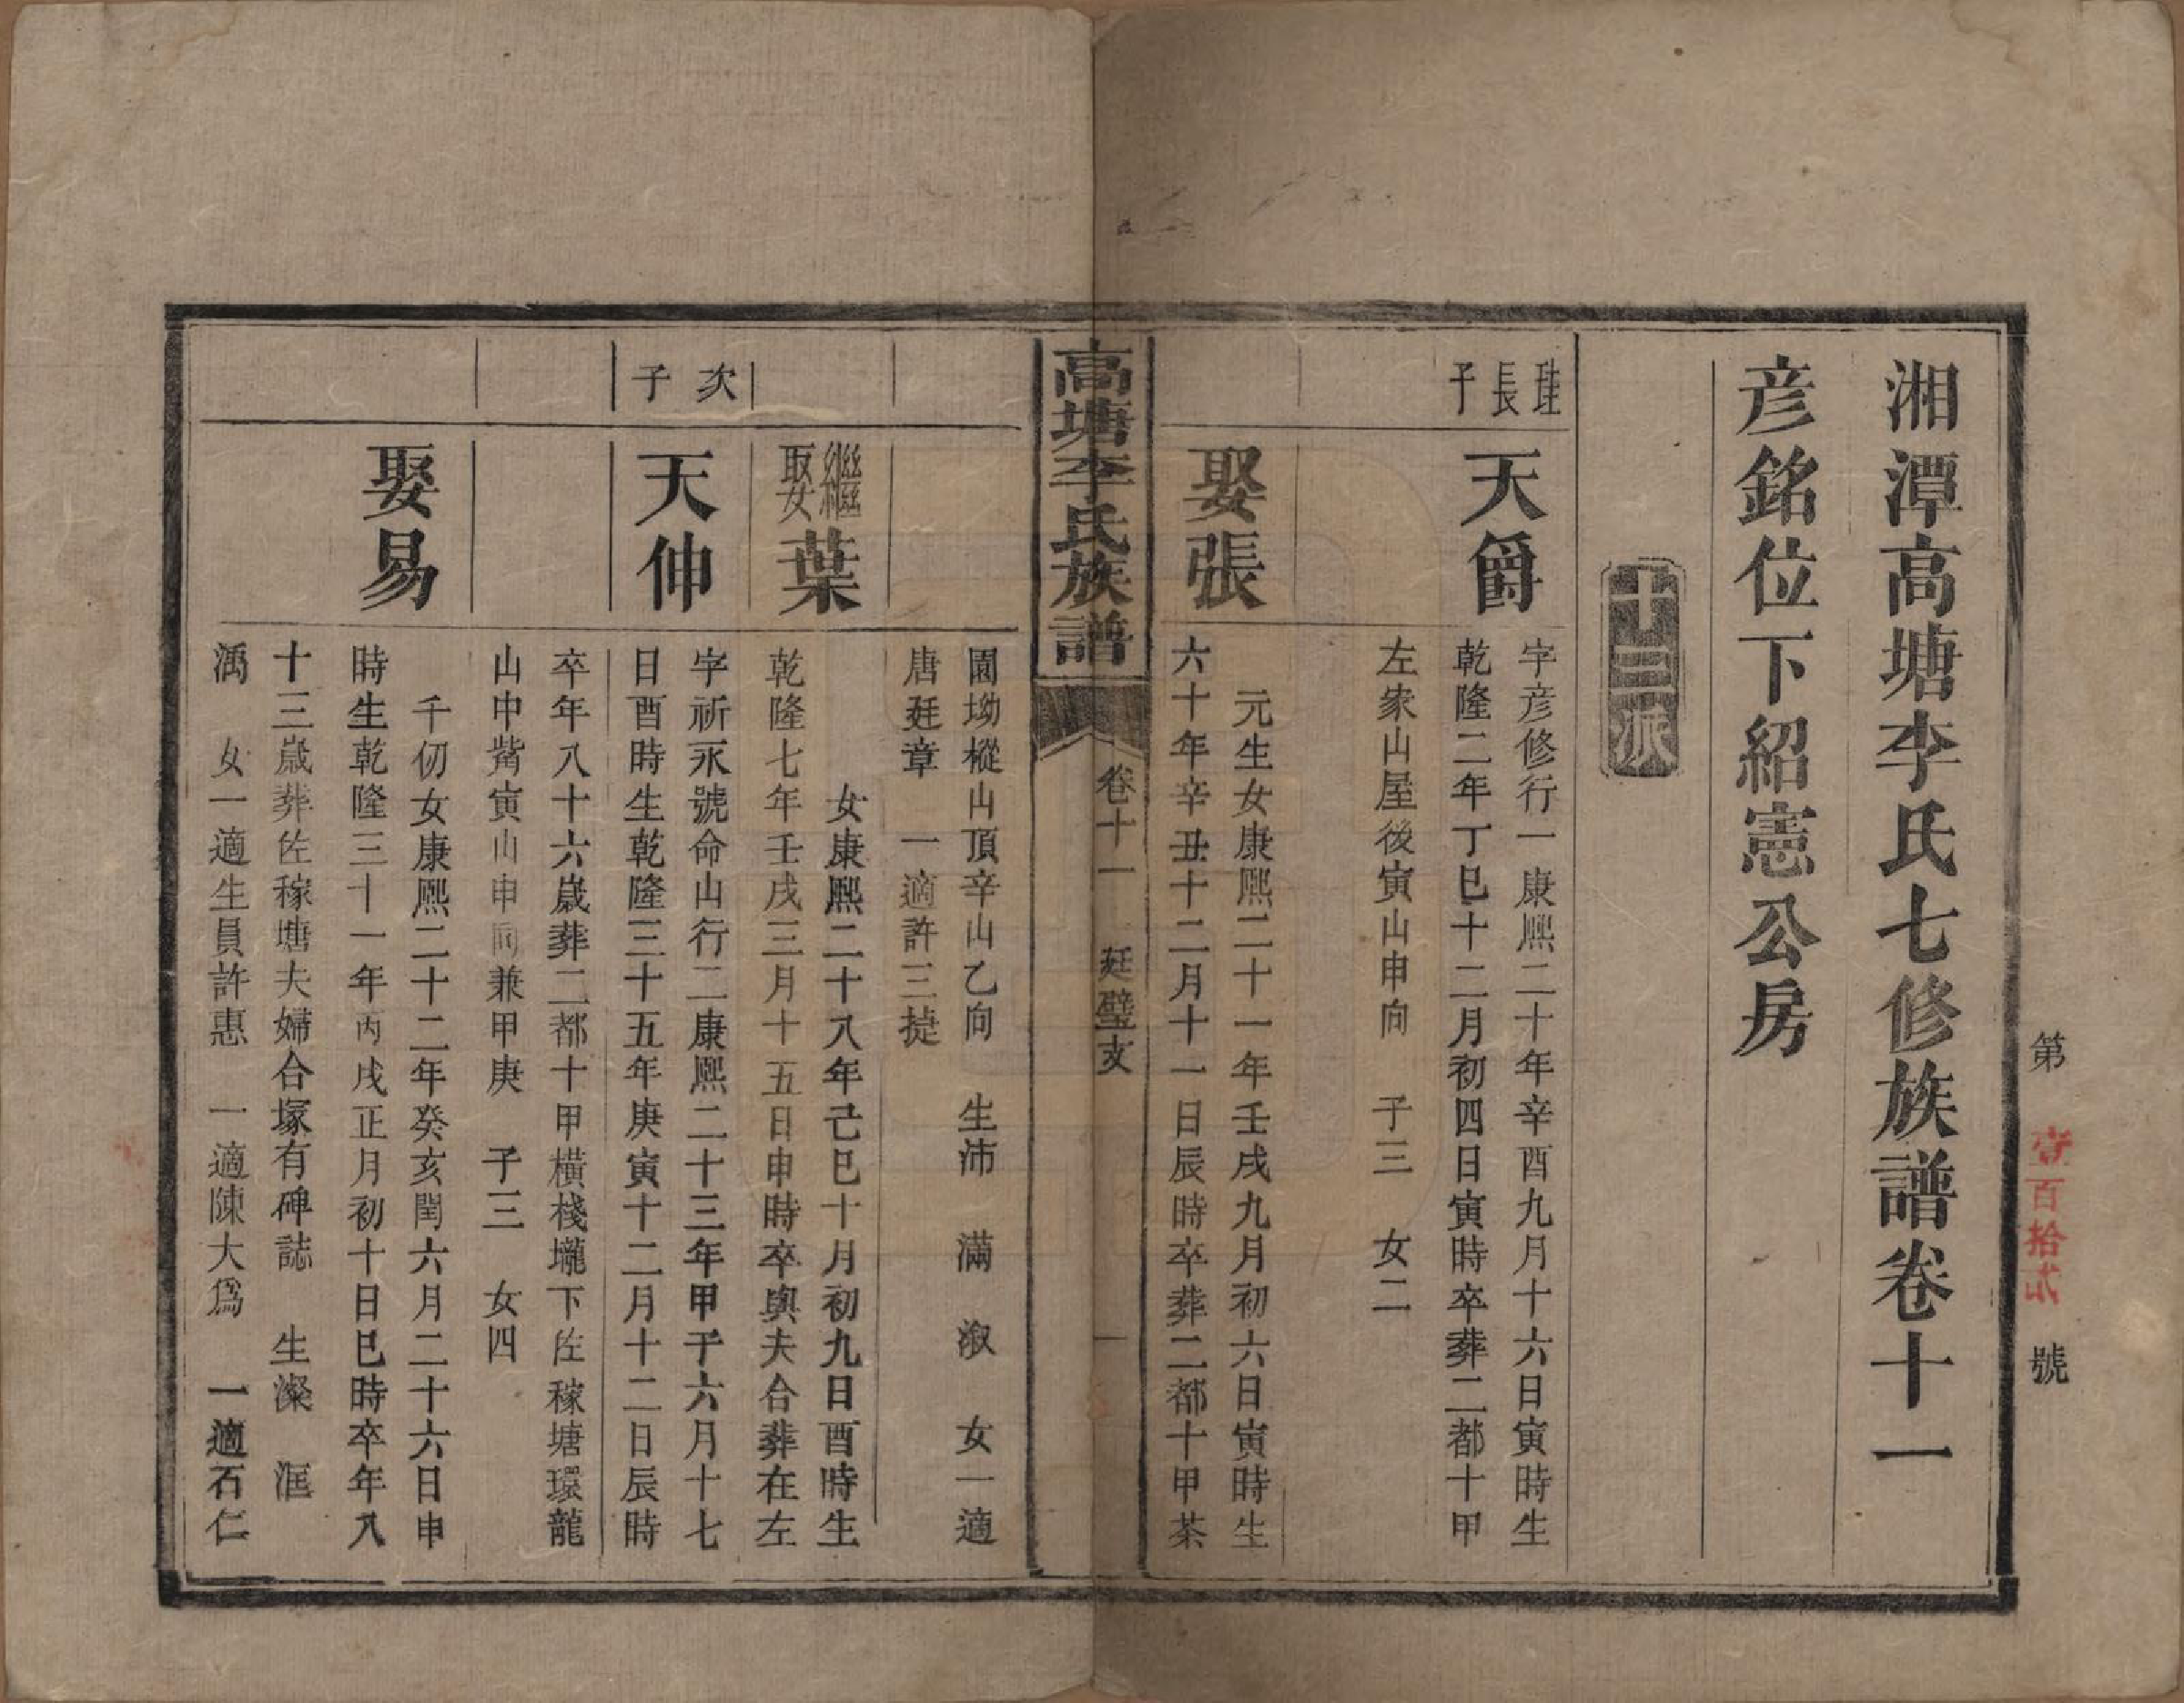 第壹百拾弍號
湘潭高塘李氏七修族譜卷十一
彦銘位下紹憲公房
十三派
珪長子
天爵
字彦修行一康熙二十年辛酉九月十六日寅時生
乾隆二年丁巳十二月初四日寅時卒葬二都十甲
左象山屋後寅山申向 子三 女二
娶張
元生女康熙二十一年壬戌九月初六日寅時生
六十年辛丑十二月十一日辰時卒葬二都十甲茶
高塘李氏族譜 卷十一 廷璧支 一
園坳樅山頂辛山乙向 生沛 滿 淑 女一適
唐廷章 一適許三㨗
繼娶葉
女康熙二十八年己巳十月初九日酉時生
乾隆七年壬戌三月十五日申時卒與夫合葬在左
次子
天伸
字祈永號命山行二康熙二十三年甲子六月十七
日酉時生乾隆三十五年庚寅十二月十二日辰時
卒年八十六歲葬二都十甲橫棧壠下佐稼塘環龍
山中嘴寅山申向兼甲庚 子三 女四
娶易
千仞女康熙二十二年癸亥閏六月二十六日申
時生乾隆三十一年丙戌正月初十日巳時卒年八
十三歲葬佐稼塘夫婦合塚有碑誌 生濼 滙
潙 女一適生員許惠 一適陳大爲 一適石仁